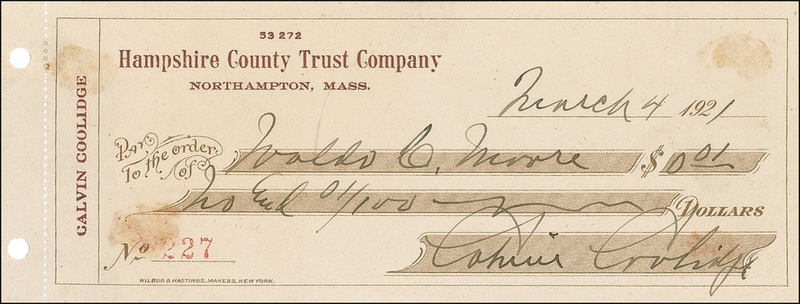 53 272
Hampshire County Trust Company
NORTHAMPTON, MASS.
CALVIN COOLIDGE
March 4 1921
Pay to the order of Waldo C. Moore $ 0 01
No and 01/100 DOLLARS
No 227
Calvin Coolidge
WILBUR & HASTINGS, MAKERS, NEW YORK.